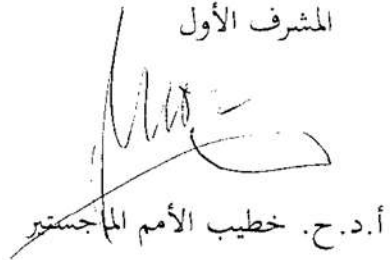 المشرف الأول
أ.د.ح. خطيب الأمم الماجستير